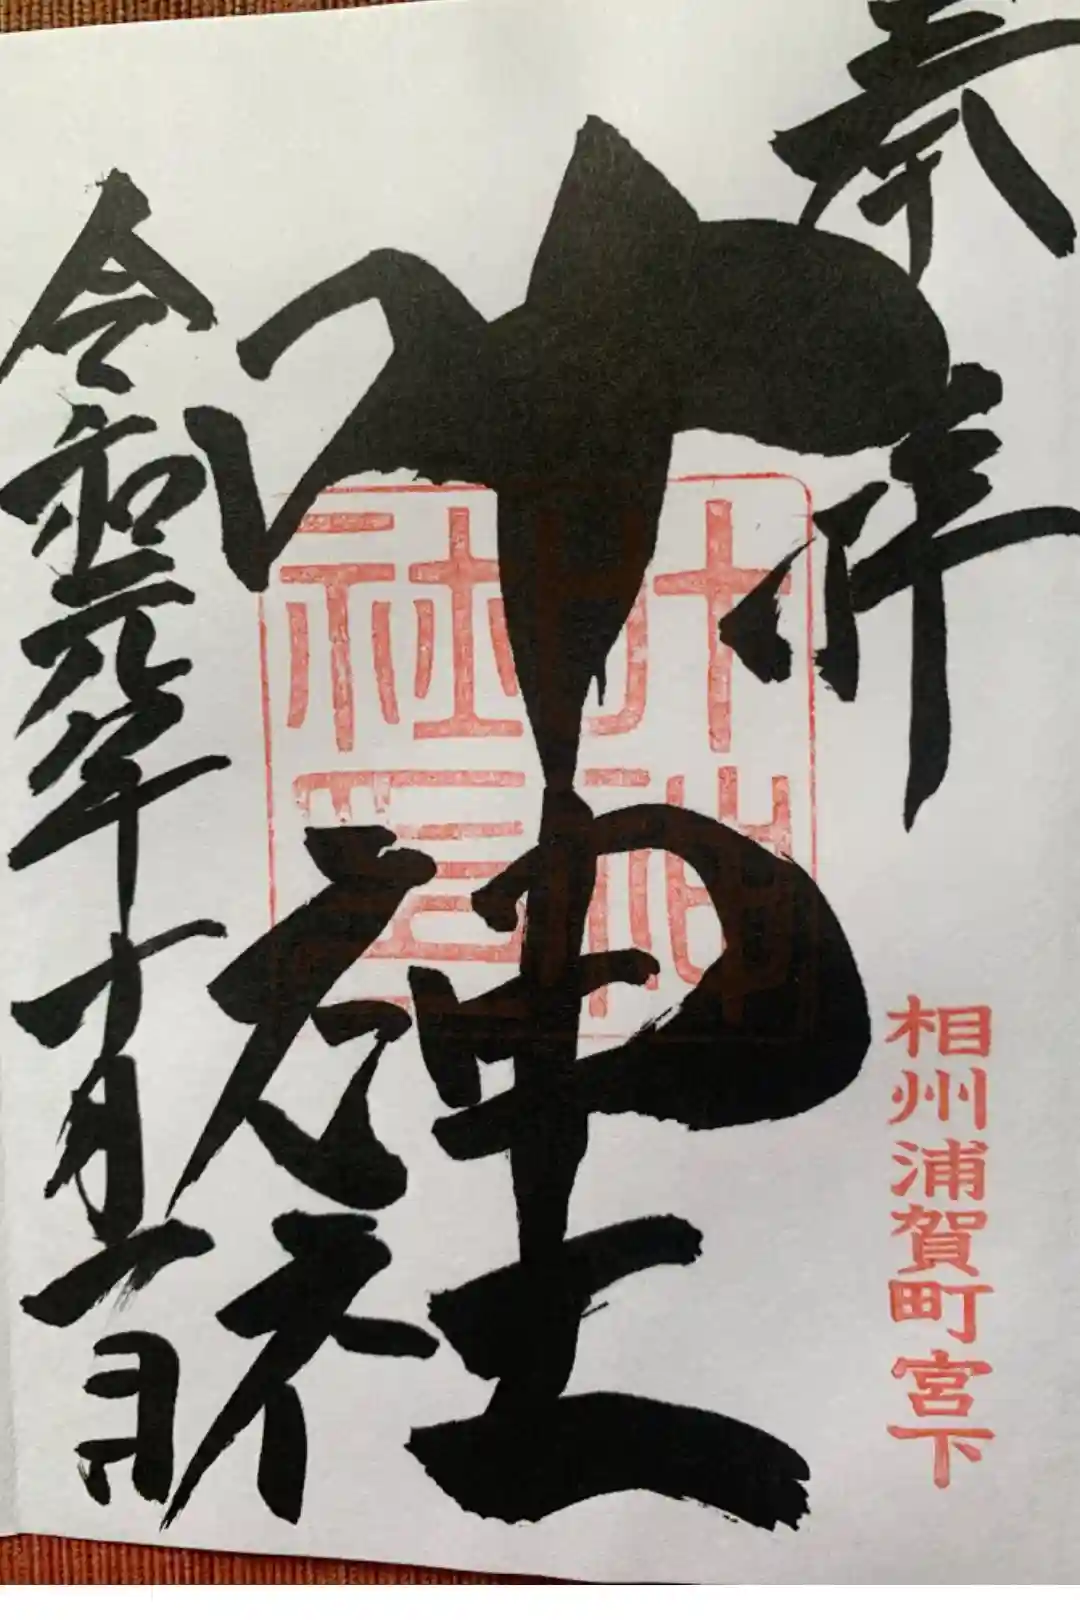 奉拝
相州浦賀町宮下
叶神社
叶神社璽
令和元年十月一日